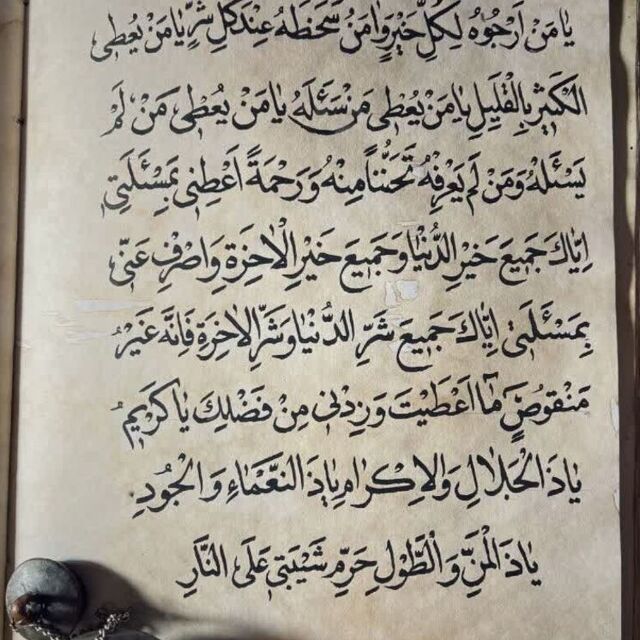 يٰا مَنْ اَرْجُوهُ لِكُلِّ خَيْرٍ وَاٰمَنُ سَخَطَهُ عِنْدَ كُلِّ شَرٍّ يٰا مَنْ يُعْطِى
الْكَثٖيرَ بِالْقَلٖيلِ يٰا مَنْ يُعْطٖى مَنْ سَئَلَهُ يٰا مَنْ يُعْطٖى مَنْ لَمْ
يَسْئَلْهُ وَمَنْ لَمْ يَعْرِفْهُ تَحَنُّنًا مِنْهُ وَرَحْمَةً اَعْطِنٖى بِمَسْئَلَتٖى
اِيّٰاكَ جَمٖيعَ خَيْرِ الدُّنْيٰا وَجَمٖيعَ خَيْرِ الْاٰخِرَةِ وَاصْرِفْ عَنّٖى
بِمَسْئَلَتٖى اِيّٰاكَ جَمٖيعَ شَرِّ الدُّنْيٰا وَشَرِّ الْاٰخِرَةِ فَاِنَّهُ غَيْرُ
مَنْقُوصٍ مٰا اَعْطَيْتَ وَزِدْنٖى مِنْ فَضْلِكَ يٰا كَرٖيمُ
يٰا ذَا الْجَلٰالِ وَالْاِكْرٰامِ يٰا ذَا النَّعْمٰاءِ وَالْجُودِ.
يٰا ذَا الْمَنِّ وَالطَّوْلِ حَرِّمْ شَيْبَتٖى عَلَى النّٰارِ